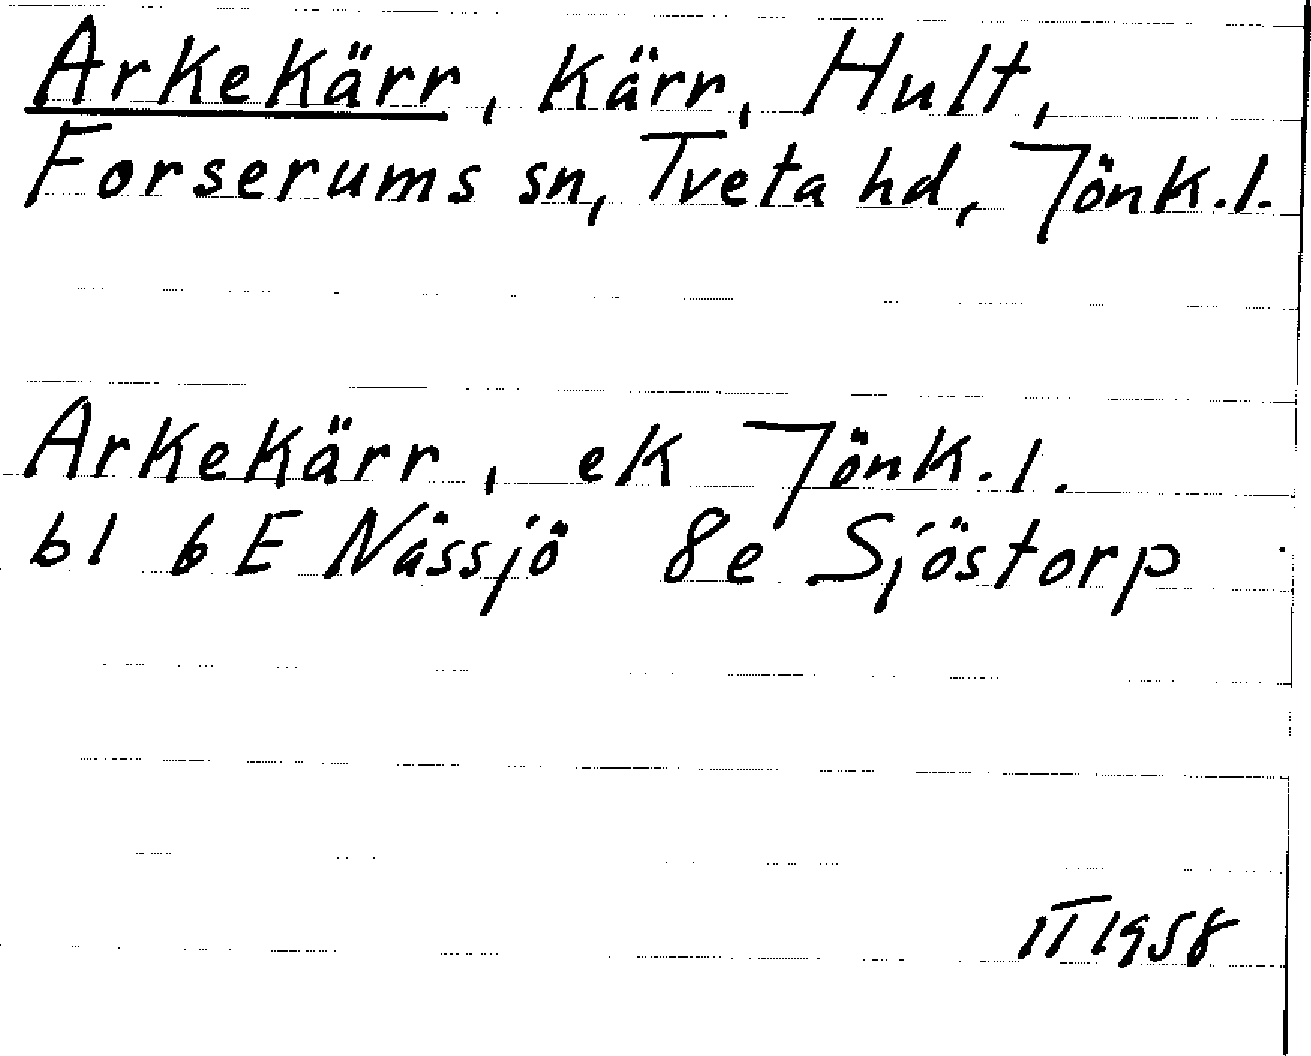 Arkekärr, kärr, Hult,
Forserums sn, Tveta hd, Jönk.l.
Arkekärr, ek Jönk.l.
bl 6 E Nässjö 8e Sjöstorp
IT 1958